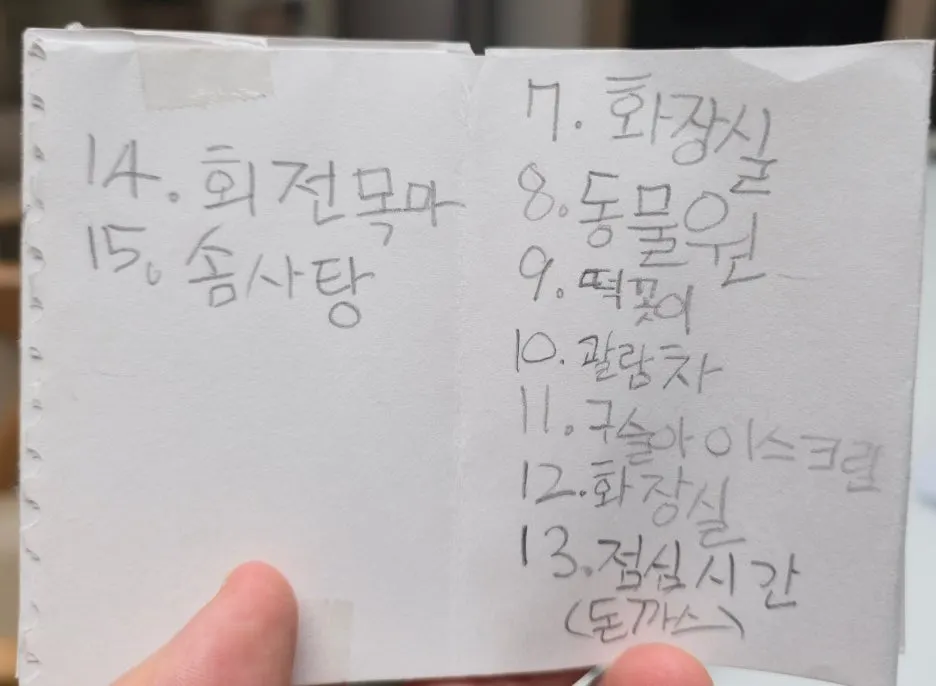 14. 회전목마
15. 솜사탕
7. 화장실
8. 동물원
9. 떡꼿이
10. 괄람차
11. 구슬아이스크림
12. 화장실
13. 점심시간
(돈까스)